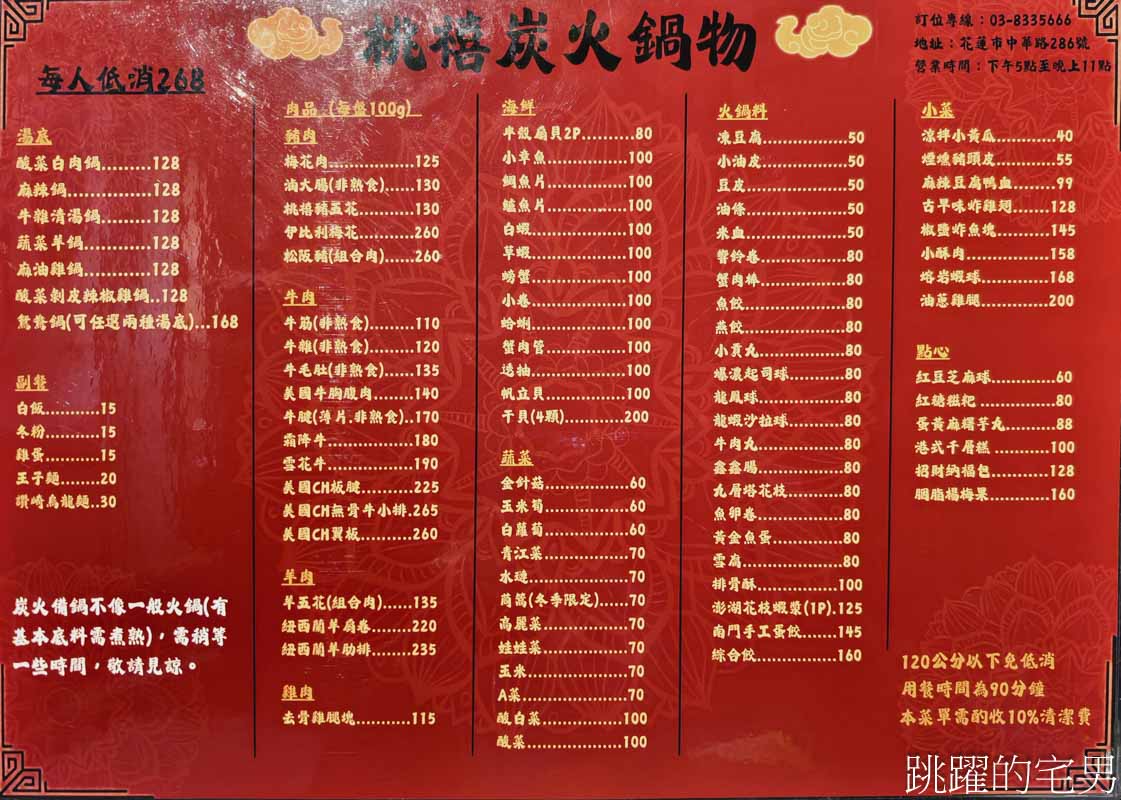 桃禧炭火鍋物
每人低消268
訂位專線：03-8335666
地址：花蓮市中華路286號
營業時間：下午5點至晚上11點
湯底
酸菜白肉鍋.........128
麻辣鍋..............128
牛雜清湯鍋.........128
蔬菜羊鍋............128
麻油雞鍋............128
酸菜剝皮辣椒雞鍋..128
鴛鴦鍋(可任選兩種湯底)...168
副餐
白飯...........15
冬粉...........15
雞蛋...........15
王子麵........20
讚崎烏龍麵..30
炭火備鍋不像一般火鍋(有
基本底料需煮熟)，需稍等
一些時間，敬請見諒。
肉品（每盤100g）
豬肉
梅花肉................125
滷大腸(非熟食)......130
桃禧豬五花...........130
伊比利梅花...........260
松阪豬(組合肉)......260
牛肉
牛筋(非熟食)........110
牛雜(非熟食)........120
牛毛肚(非熟食).....135
美國牛胸腹肉........140
牛腱(薄片.非熟食)..170
霜降牛................180
雪花牛................190
美國CH板腱..........225
美國CH無骨牛小排.265
美國CH翼板..........260
羊肉
羊五花(組合肉)......135
紐西蘭羊肩卷........220
紐西蘭羊肋排........235
雞肉
去骨雞腿塊...........115
海鮮
半殼扇貝2P..........80
小章魚................100
鯛魚片................100
鱸魚片................100
白蝦...................100
草蝦...................100
螃蟹...................100
小卷...................100
蛤蜊...................100
蟹肉管................100
透抽...................100
帆立貝................100
干貝(4顆)............200
蔬菜
金針菇.................60
玉米筍.................60
白蘿蔔.................60
青江菜.................70
水蓮....................70
茼蒿(冬季限定)......70
高麗菜.................70
娃娃菜.................70
玉米....................70
A菜.....................70
酸白菜................100
酸菜...................100
火鍋料
凍豆腐.................50
小油皮.................50
豆皮....................50
油條....................50
米血....................50
響鈴卷.................80
蟹肉棒.................80
魚餃....................80
燕餃....................80
小貢丸.................80
爆濃起司球...........80
龍鳳球.................80
龍蝦沙拉球...........80
牛肉丸.................80
鑫鑫腸.................80
九層塔花枝...........80
魚卵卷.................80
黃金魚蛋..............80
雪腐....................80
排骨酥................100
澎湖花枝蝦漿(1P).125
南門手工蛋餃.......145
綜合餃................160
小菜
涼拌小黃瓜...........40
煙燻豬頭皮...........55
麻辣豆腐鴨血.......99
古早味炸雞翅......128
椒鹽炸魚塊.........145
小酥肉...............158
熔岩蝦球............168
油蔥雞腿............200
點心
紅豆芝麻球............60
紅糖糍粑 ..............80
蛋黃麻糬芋丸.........88
港式千層糕 ..........100
招財納福包..........128
胭脂楊梅果..........160
120公分以下免低消
用餐時間為90分鐘
本菜單需酌收10%清潔費
跳躍的宅男